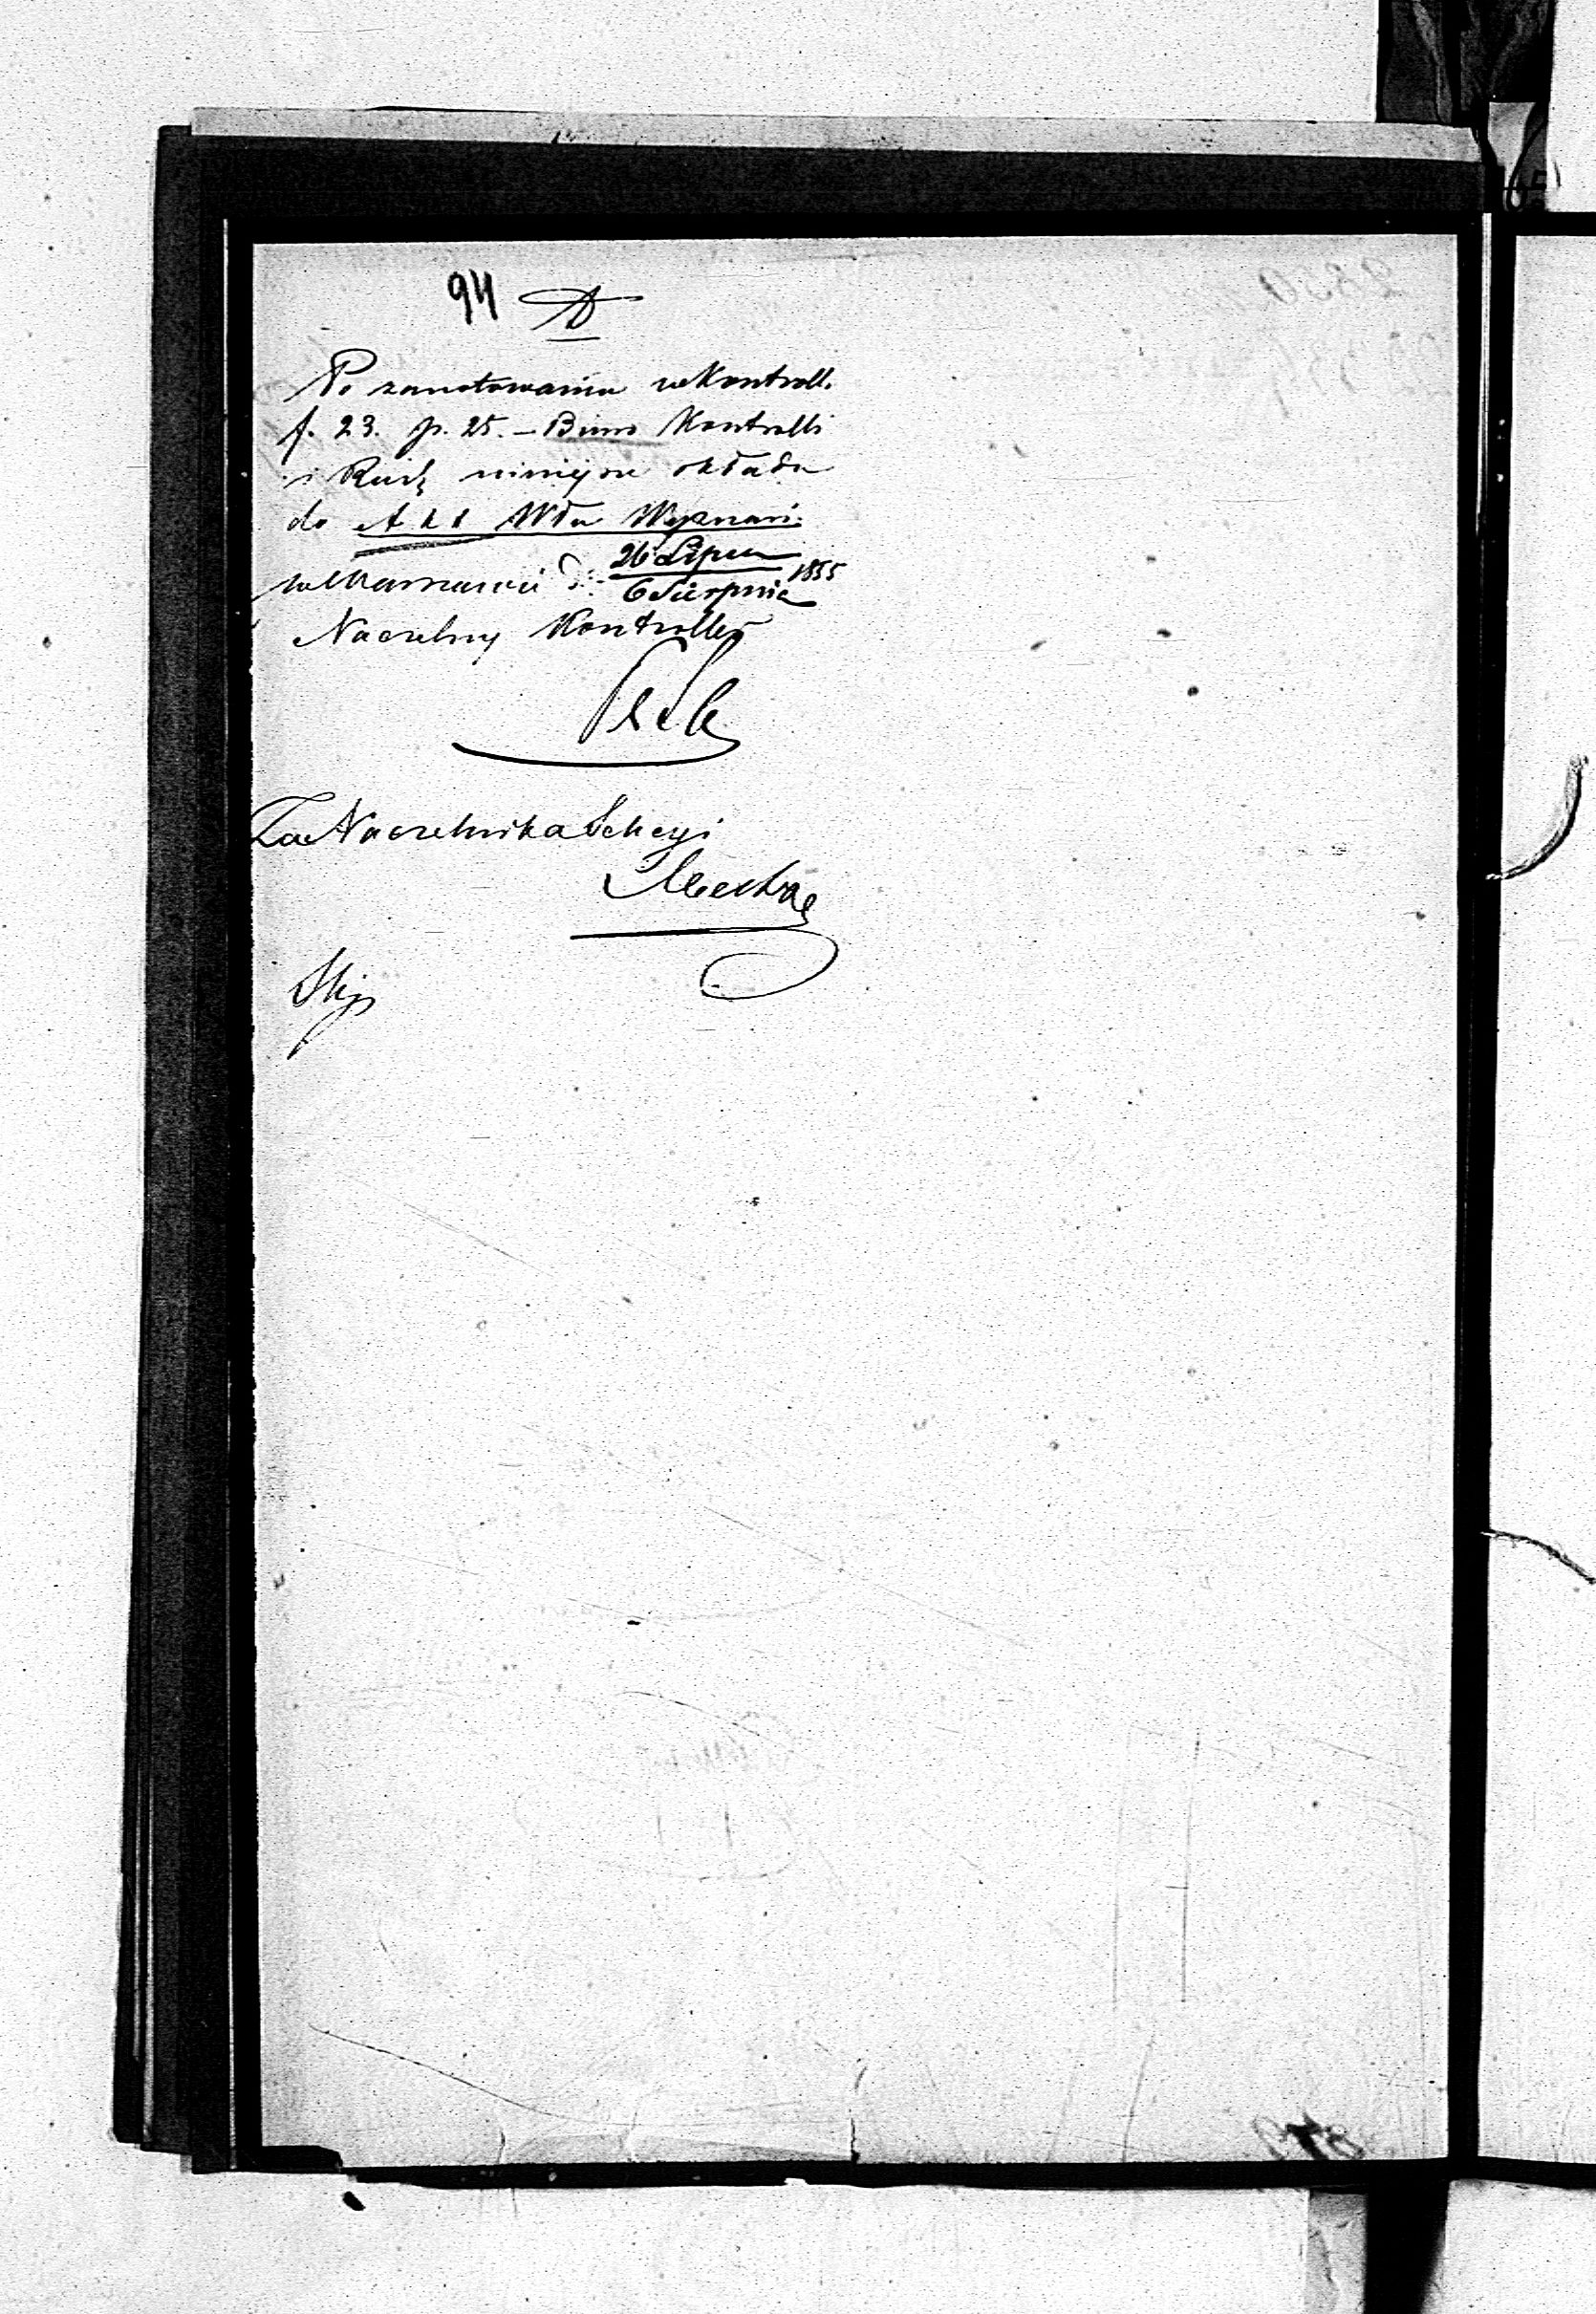 94
Po zanotowaniu w Kontroll.
f. 23. p. 25. – Biuro Kontrolli
i Rach niniejsze okłada
do Akt Wdu Wyznań:
w Warszawie d: 26 Lipca / 6 Sierpnia 1855
Naczelny Kontroller
Za Naczelnika Sekcyi